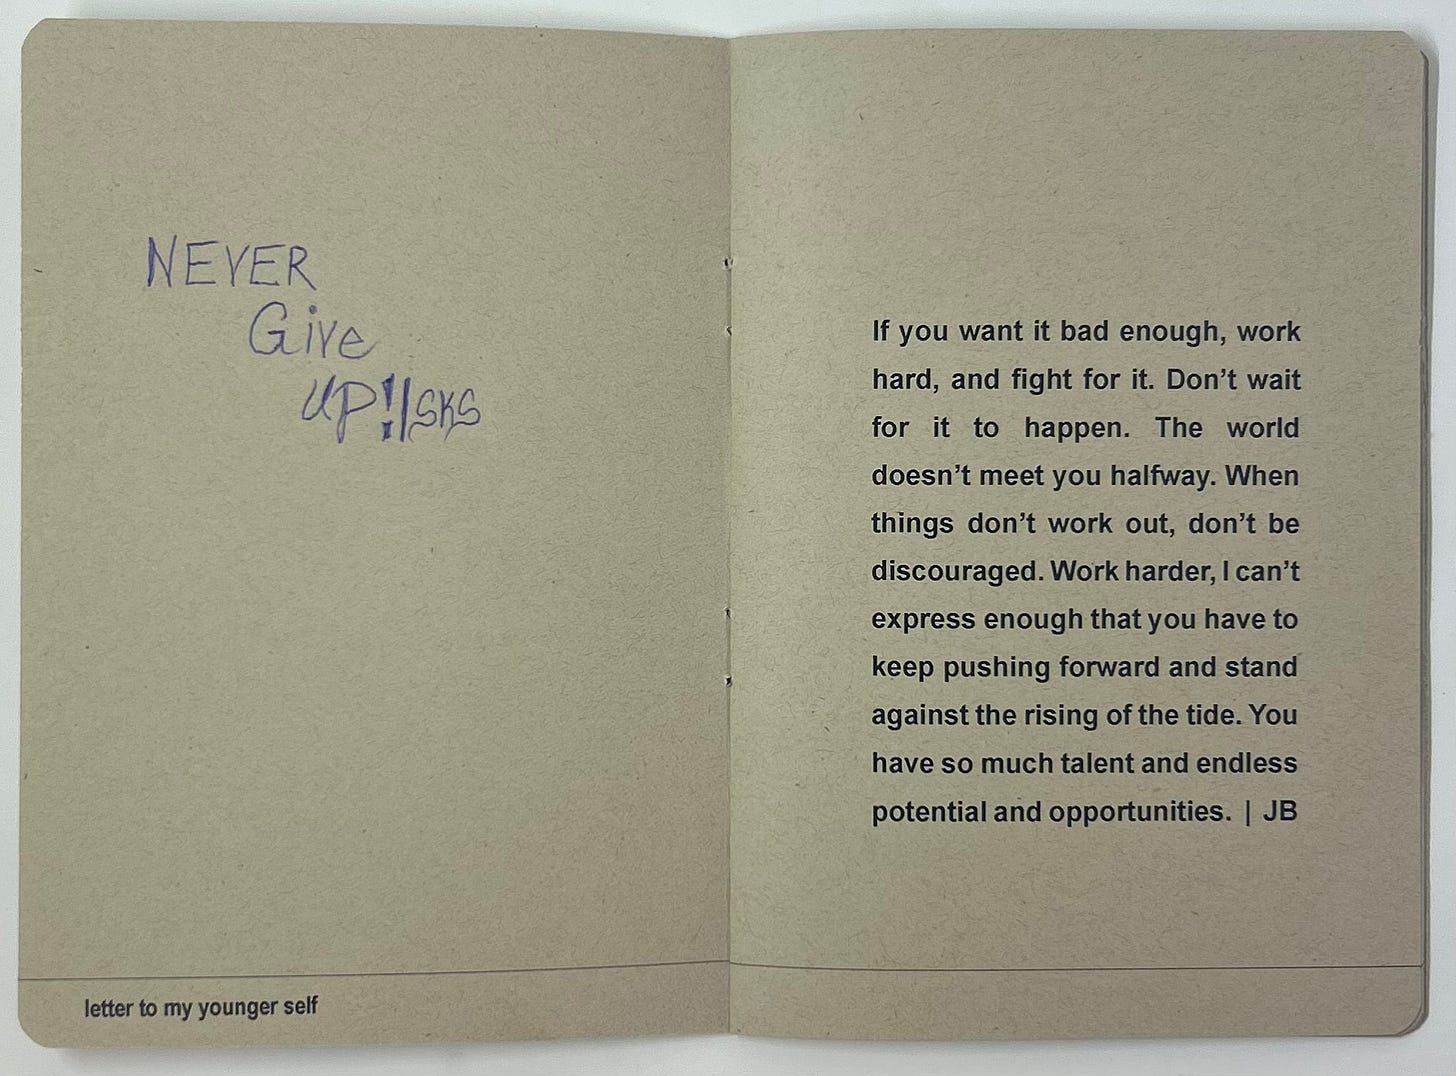 NEVER
Give
UP!|SKS
letter to my younger self
If you want it bad enough, work
hard, and fight for it. Don’t wait
for it to happen. The world
doesn’t meet you halfway. When
things don’t work out, don’t be
discouraged. Work harder, I can’t
express enough that you have to
keep pushing forward and stand
against the rising of the tide. You
have so much talent and endless
potential and opportunities. | JB